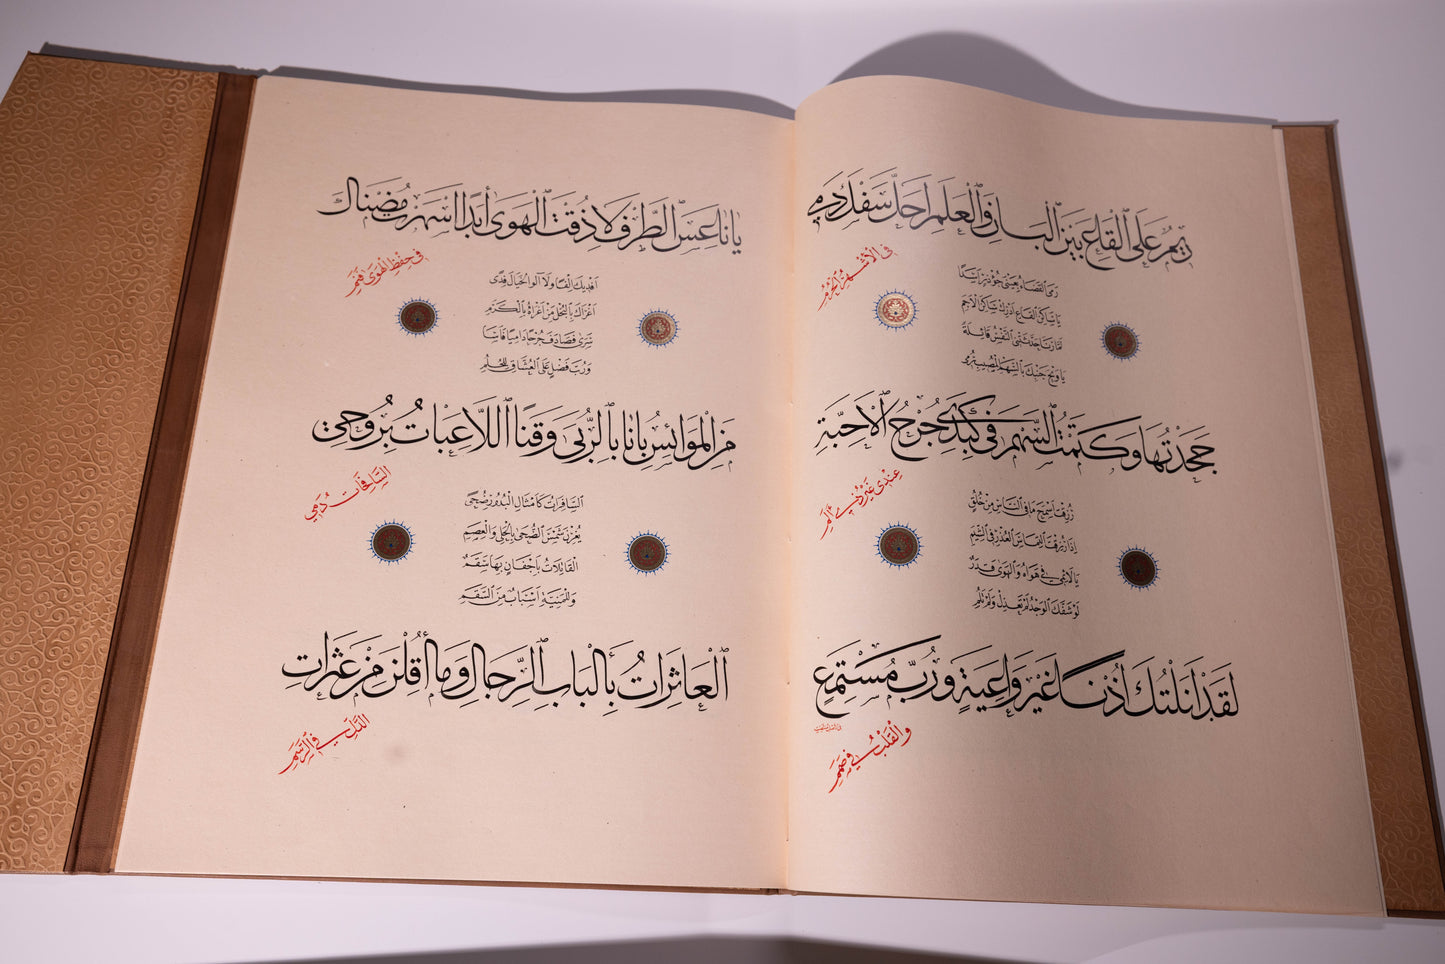 رِيمٌ عَلَى القَاعِ بَيْنَ البَانِ وَالعَلَمِ أَحَلَّ سَفْكَ دَمِي
فِي الأَشْهُرِ الحُرُمِ
رَمَى القَضَاءُ بِعَيْنَي جُؤْذَرٍ أَسَدًا
يَا سَاكِنَ القَاعِ أَدْرِكْ سَاكِنَ الأَجَمِ
لَمَّا رَنَا حَدَّثَتْنِي النَّفْسُ قَائِلَةً
يَا وَيْحَ جَنْبِكَ بِالسَّهْمِ المُصِيبِ رُمِي
جَحَدْتُهَا وَكَتَمْتُ السَّهْمَ فِي كَبِدِي جُرْحُ الأَحِبَّةِ
عِنْدِي غَيْرُ ذِي أَلَمِ
رُزِقْتَ أَسْمَحَ مَا فِي النَّاسِ مِنْ خُلُقٍ
إِذَا رُزِقْتَ التِمَاسَ العُذْرِ فِي الشِّيَمِ
يَا لَائِمِي فِي هَوَاهُ وَالهَوَى قَدَرٌ
لَوْ شَفَّكَ الوَجْدُ لَمْ تَعْذِلْ وَلَمْ تَلُمِ
لَقَدْ أَنَلْتُكَ أُذْنًا غَيْرَ وَاعِيَةٍ وَرُبَّ مُسْتَمِعٍ
وَالقَلْبُ فِي صَمَمِ
يَا نَاعِسَ الطَّرْفِ لَا ذُقْتَ الهَوَى أَبَدًا أَسْهَرْتَ مُضْنَاكَ
فِي حِفْظِ الهَوَى فَنَمِ
أَفْدِيكَ إِلْفًا وَلَا آلُو الخَيَالَ فِدًى
أَغْرَاكَ بِالبُخْلِ مَنْ أَغْرَاهُ بِالكَرَمِ
سَرَى فَصَادَفَ جُرْحًا دَامِيًا فَأَسَا
وَرُبَّ فَضْلٍ عَلَى العُشَّاقِ لِلْحُلُمِ
مَنِ المَوَائِسُ بَانًا بِالرُّبَى وَقَنًا اللَّاعِبَاتُ بِرُوحِي
السَّافِحَاتُ دَمِي
السَّافِرَاتُ كَأَمْثَالِ البُدُورِ ضُحًى
يُغِرْنَ شَمْسَ الضُّحَى بِالحَلْيِ وَالعِصَمِ
القَاتِلَاتُ بِأَجْفَانٍ بِهَا سَقَمٌ
وَلِلْمَنِيَّةِ أَسْبَابٌ مِنَ السَّقَمِ
العَاثِرَاتُ بِأَلْبَابِ الرِّجَالِ وَمَا أُقِلْنَ مِنْ عَثَرَاتِ
الدَّلِّ فِي الرَّسَمِ